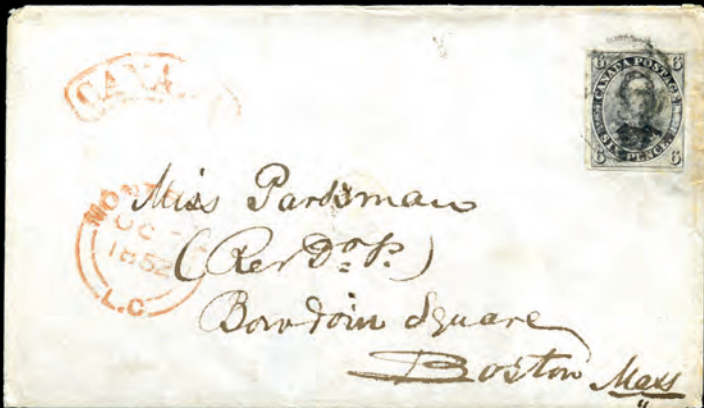 CANADA
6 CANADA POSTAGE 6
6 SIX PENCE 6
MONTREAL
OC
1852
L.C
Miss Parssman
(Rev Do. P.)
Bowdoin Square
Boston Mass